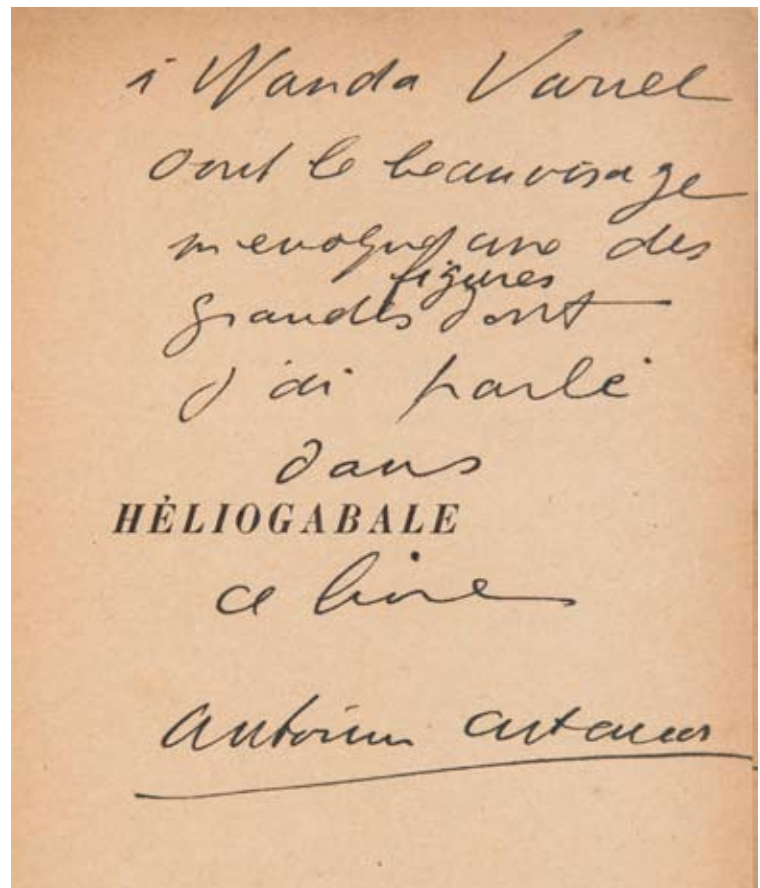 à Wanda Vanel
dont le beau visage
m'evoque une des
figures
grandes dont
j'ai parlé
dans
HÉLIOGABALE
ce livre
Antonin Artaud